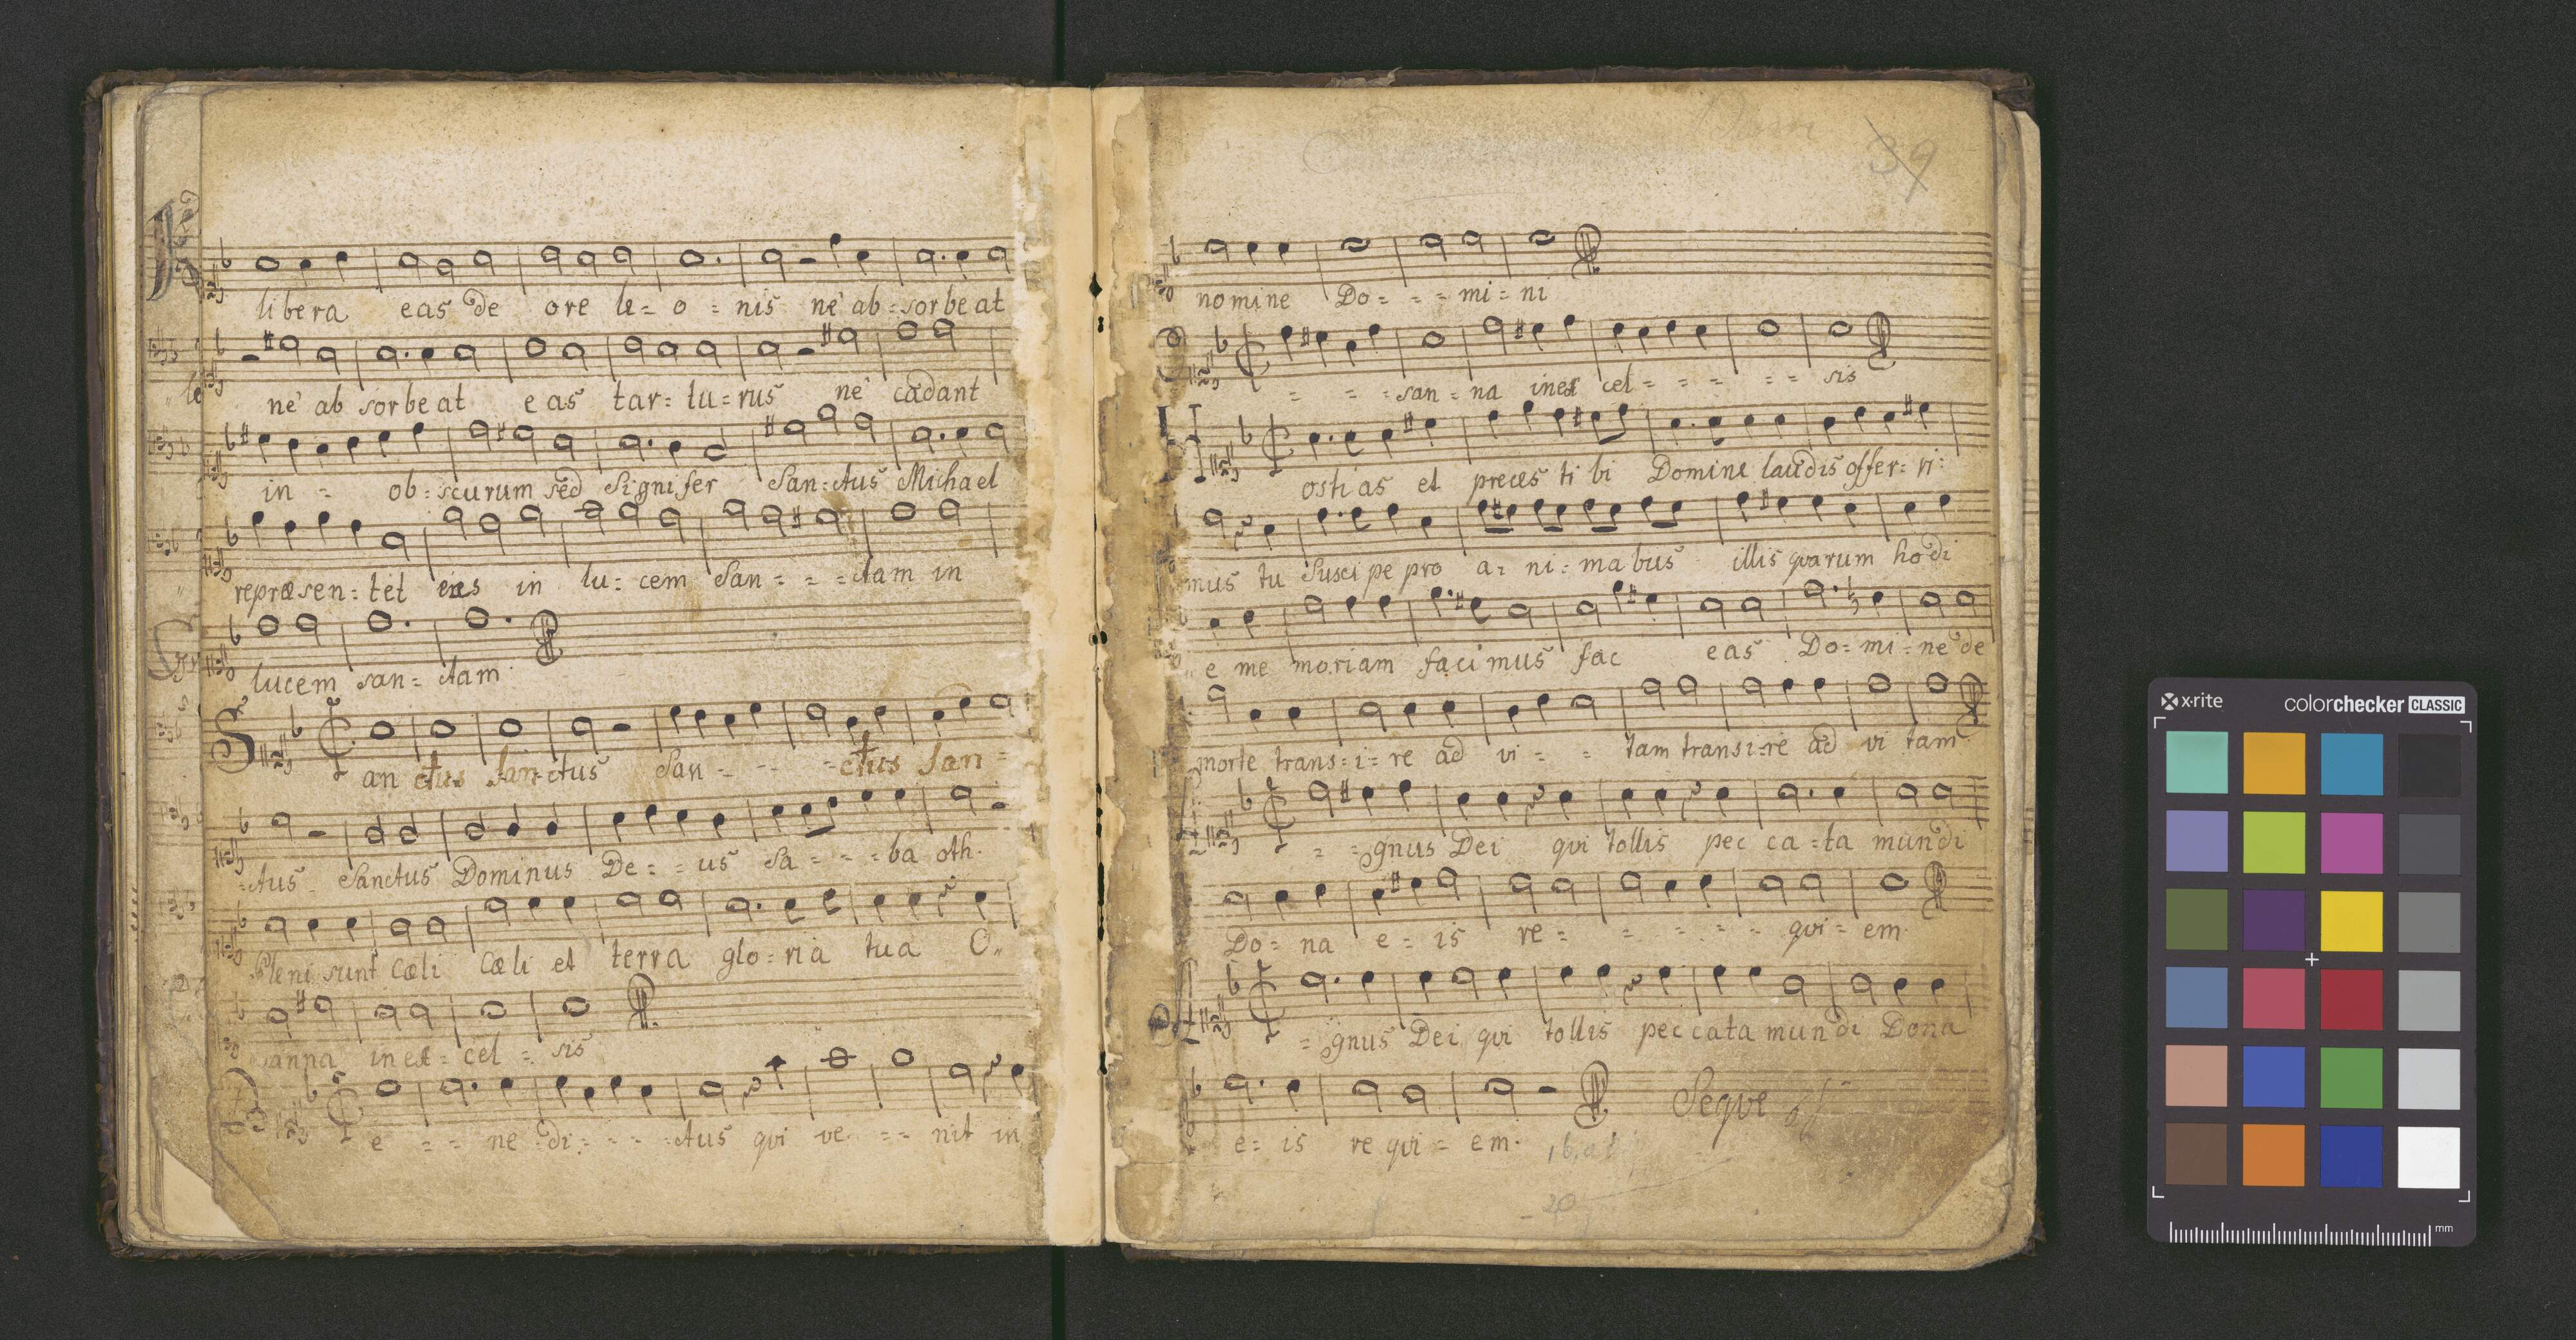 libera eas de ore le = o = nis ne ab = sorbeat
ne ab sorbeat eas tar = tu = rus ne cadant
in = ob = scurum sed Signifer San = ctus Michael
repræsen = tet eas in lu = cem San = = = ctam in
lucem san = ctam
San ctus San = ctus San = = = ctus San =
= ctus Sanctus Dominus De = = us Sa = = = ba oth.
Pleni sunt Cæli Cæli et terra glo = ria tua O
sanna in ex = cel = sis
Be = = ne = di = = = ctus qui ve = = nit in
39
nomine Do = = = mi = ni
O = = = san = na in ex cel = = = = = sis
Hostias et preces ti bi Domine laudis offer = ri =
mus tu Suscipe pro a = ni = mabus illis quarum hodi
e me moriam facimus fac eas Do = mi = ne de
morte trans = i = re ad vi = = tam transi = re ad vi tam
= = gnus Dei qui tollis pec ca = ta mundi
Do = na e = is re = = = = = qui = em
= gnus Dei qui tollis peccata mundi Dona
e = is re qui = em. Seque
20
x-rite colorchecker CLASSIC
mm